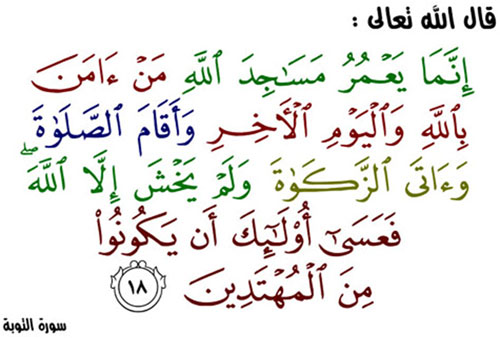 قال الله تعالى :
إِنَّمَا يَعْمُرُ مَسَـٰجِدَ ٱللَّهِ مَنْ ءَامَنَ
بِٱللَّهِ وَٱلْيَوْمِ ٱلْأَخِرِ وَأَقَامَ ٱلصَّلَوٰةَ
وَءَاتَى ٱلزَّكَوٰةَ وَلَمْ يَخْشَ إِلَّا ٱللَّهَ ۖ
فَعَسَىٰٓ أُو۟لَـٰٓئِكَ أَن يَكُونُوا۟
مِنَ ٱلْمُهْتَدِينَ ١٨
سورة التوبة